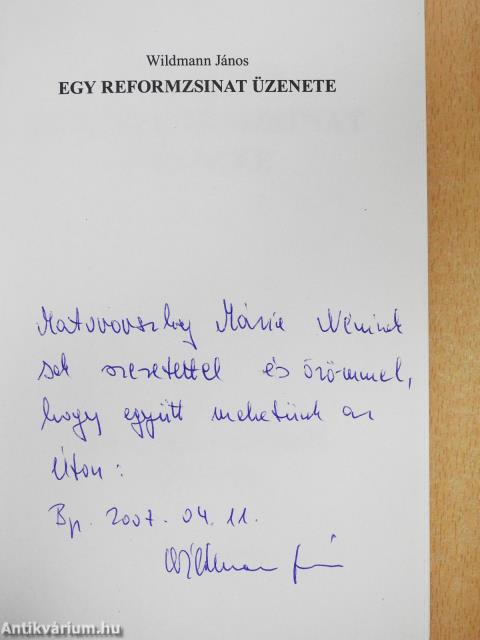 Wildmann János
EGY REFORMZSINAT ÜZENETE
Mária Néninek
sok szeretettel és örömmel,
hogy együtt mehetünk az
Úton:
Bp. 2007. 04. 11.
Wildmann János
Antikvárium.hu